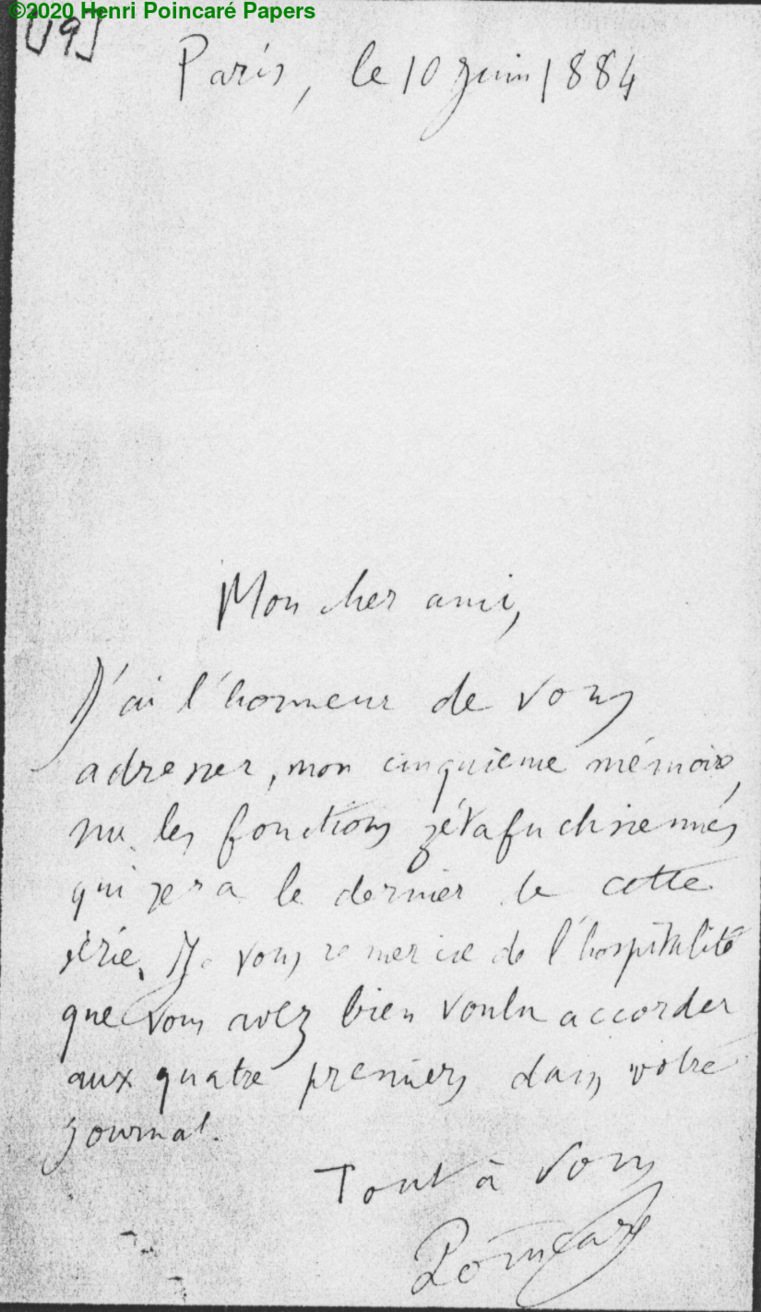 ©2020 Henri Poincaré Papers
[19]
Paris, le 10 Juin 1884
Mon cher ami,
J'ai l'honneur de vous
adresser, mon cinquième mémoire,
sur les fonctions zétafuchsiennes
qui sera le dernier de cette
série. Je vous remercie de l'hospitalité
que vous avez bien voulu accorder
aux quatre premiers dans votre
journal.
Tout à vous
Poincaré